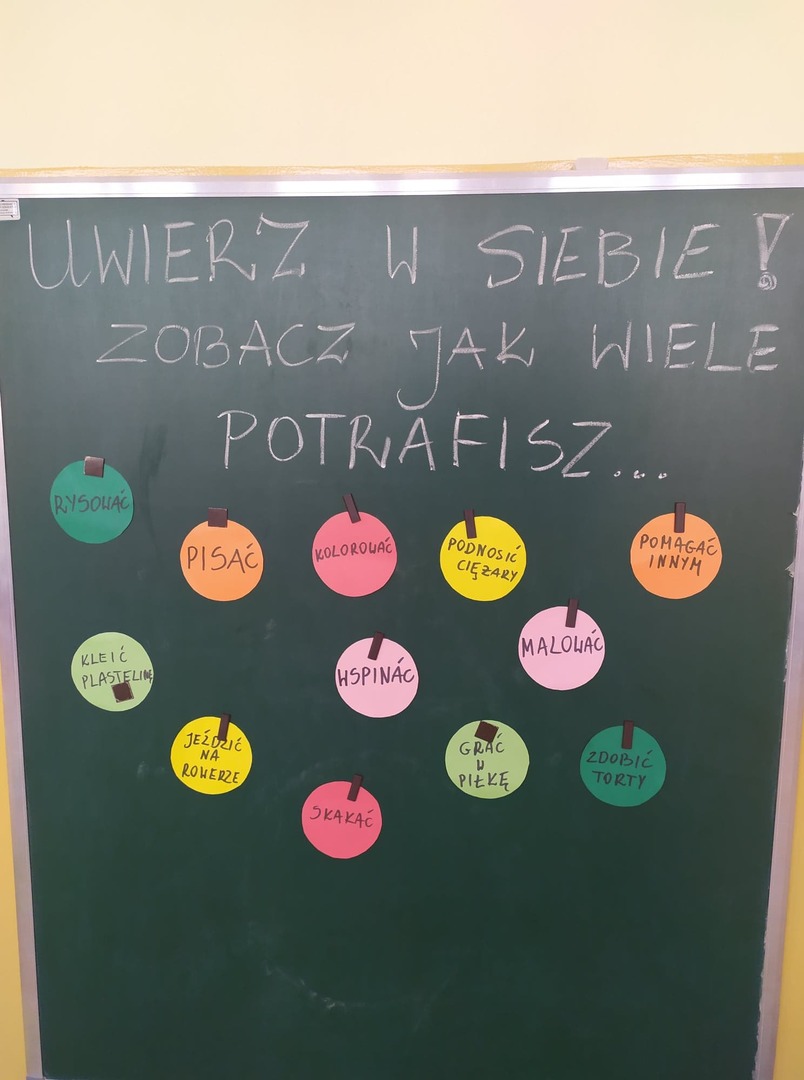 UWIERZ W SIEBIE!
ZOBACZ JAK WIELE
POTRAFISZ...
RYSOWAĆ
PISAĆ
KOLOROWAĆ
PODNOSIĆ
CIĘŻARY
POMAGAĆ
INNYM
KLEIĆ
PLASTELINĘ
WSPINÁĆ
MALOWAĆ
JEŹDZIĆ
NA
ROWERZE
SKAKAĆ
GRAĆ
W
PIŁKĘ
ZDOBIĆ
TORTY